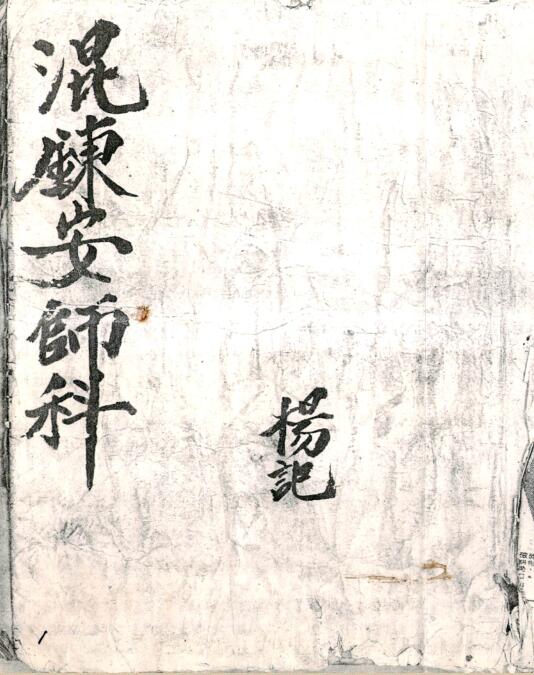 混鍊安師科
楊記